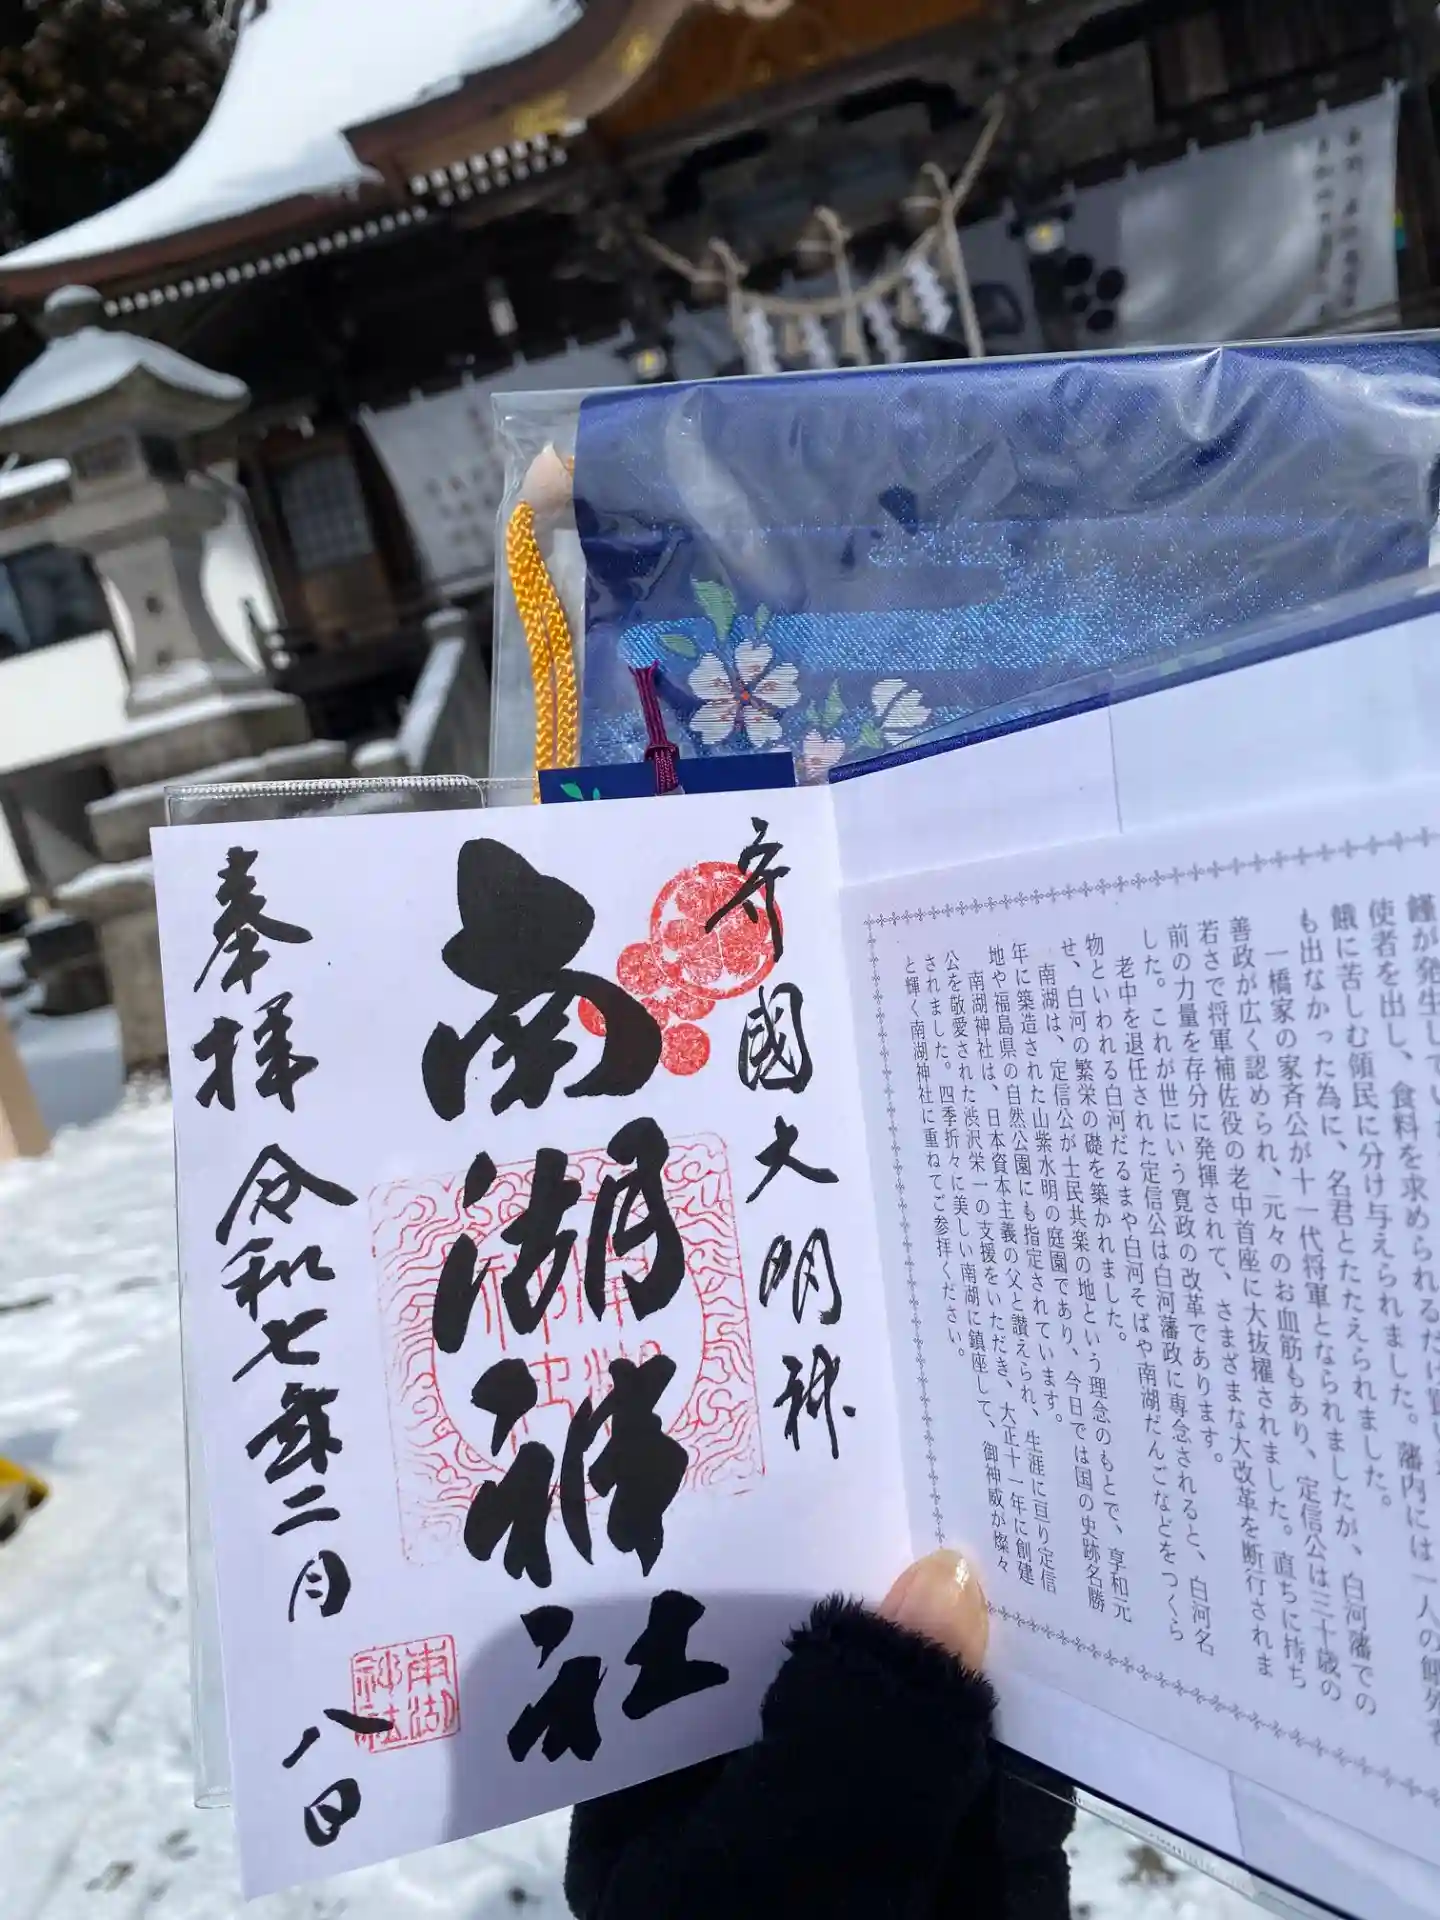 守國大明神
南湖神社
奉拝 令和七年二月八日
南湖
神社
饉が発生してい
使者を出し、食料を求められるだけ買い
餓に苦しむ領民に分け与えられました。藩内には一人の餓死者
も出なかった為に、名君とたたえられました。
一橋家の家斉公が十一代将軍となられましたが、白河藩での
善政が広く認められ、元々のお血筋もあり、定信公は三十歳の
若さで将軍補佐役の老中首座に大抜擢されました。直ちに持ち
前の力量を存分に発揮されて、さまざまな大改革を断行されま
した。これが世にいう寛政の改革であります。
老中を退任された定信公は白河藩政に専念されると、白河名
物といわれる白河だるまや白河そばや南湖だんごなどをつくら
せ、白河の繁栄の礎を築かれました。
南湖は、定信公が士民共楽の地という理念のもとで、享和元
年に築造された山紫水明の庭園であり、今日では国の史跡名勝
地や福島県の自然公園にも指定されています。
南湖神社は、日本資本主義の父と讃えられ、生涯に亘り定信
公を敬愛された渋沢栄一の支援をいただき、大正十一年に創建
されました。四季折々に美しい南湖に鎮座して、御神威が燦々
と輝く南湖神社に重ねてご参拝ください。